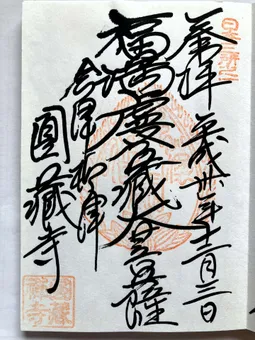 奉拝 平成卅年十二月三日
福満虚空藏大菩薩
会津柳津
圓藏寺